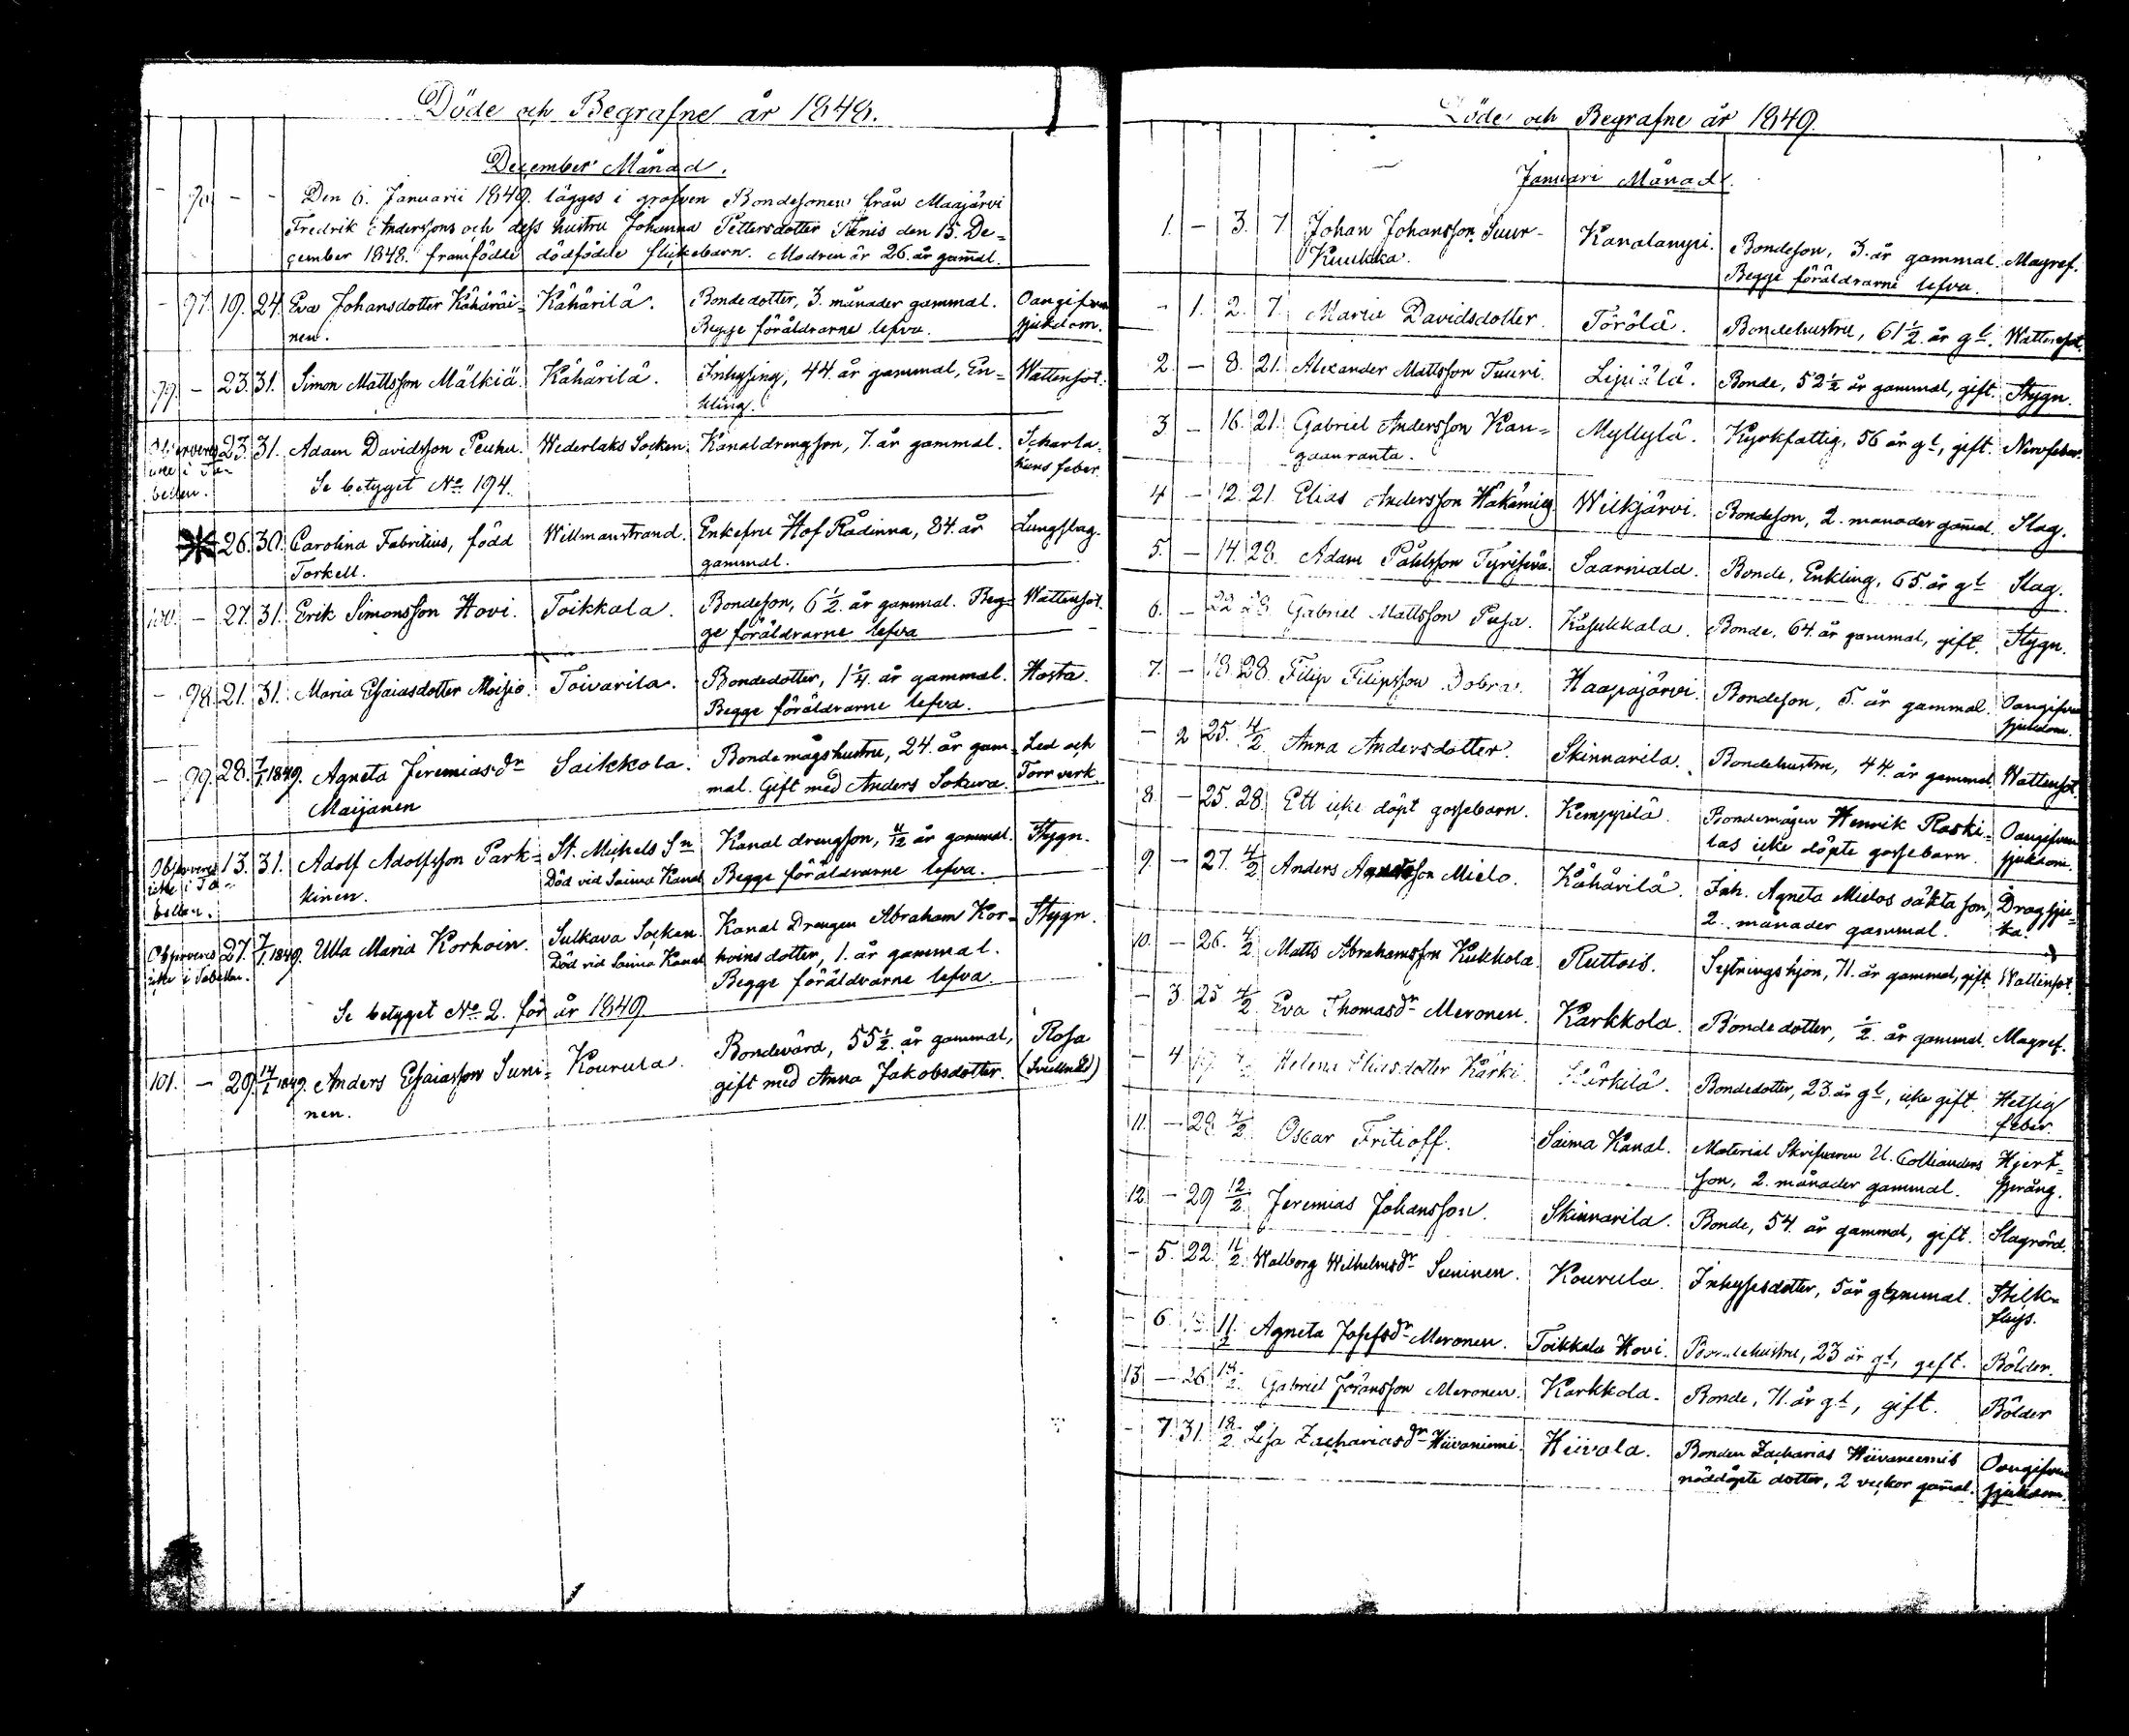 Döde och Begrafne år 1848.
December Månad.
Den 6. Januarii 1849. lägges i grafven Bondesonen från Maajärvi
Fredrik Anderssons och dess hustru Johanna Pettersdotter Tenis den 15. De=
cember 1848. framfödde dödfödde flickebarn. Modren är 26. år gam̄al.
- 97. 19. 24. Eva Johansdotter Kähäräi= Kähärilä. Bondedotter, 3. månader gammal. Oangifven
nen. Begge föräldrarne lefva. sjukdom.
99. - 23. 31. Simon Mattsson Mälkiä. Kähärilä. Inhysing, 44. år gammal, En= Wattensot.
kling.
Observeras 23. 31. Adam Davidsson Peuhu. Wederlaks Socken. Kanaldrengson, 7. år gammal. Scharla=
icke i Ta kans feber.
bellen. Se betyget No 194.
26. 30. Carolina Fabritius, född Willmanstrand. Enkefru Hof Rådinna, 84. år Lungslag.
Torkell. gammal.
100. - 27. 31. Erik Simonsson Hovi. Toikkala. Bondeson, 6 1/2. år gammal. Beg= Wattensot.
ge föräldrarne lefva
- 98. 21. 31. Maria Esaiasdotter Moisio. Toivarila. Bondedotter, 1 1/4. år gammal. Hosta.
Begge föräldrarne lefva.
- 99. 28. 7/1 1849. Agneta Jeremiasdr Saikkola. Bondemågshustru, 24. år gam= Led och
Maijanen mal. Gift med Anders Sokura. Torrverk.
Observeras 13. 31. Adolf Adolfsson Park= St. Michels Sn Kanal drengson, 11/12 år gammal. Stygn.
icke i Ta kinen. Död vid Saima Kanal Begge föräldrarne lefva.
bellen.
Observeras 27. 7/1 1849. Ulla Maria Korhoin. Sulkava Socken. Kanal Drengen Abraham Kor= Stygn.
icke i Tabellen. Död vid Saima Kanal hoins dotter, 1. år gammal.
Begge föräldrarne lefva.
Se betyget No 2. för år 1849
101. - 29. 14/1 1849. Anders Esaiasson Suni= Kourula. Bondevärd, 55 1/2. år gammal, Rosa
nen. gift med Anna Jakobsdotter.
Döde och Begrafne år 1849.
Januari Månad.
1. - 3. 7 Johan Johansson Suur- Kanalanyri. Bondeson, 3. år gammal. Magref.
Kuukka. Begge föräldrarne lefva.
- 1. 2. 7. Maria Davidsdotter. Törölä. Bondehustru, 61 1/2. år gl. Wattensot.
2. - 8. 21. Alexander Mattsson Tuuri. Lipiälä. Bonde, 52 1/2 år gammal, gift. Stygn.
3 - 16. 21. Gabriel Andersson Kan= Myllylä. Kyrkfattig, 56 år gl, gift. Nervfeber.
gaanranta.
4 - 12. 21. Elias Andersson Wilkjärvi. Bondeson, 2. månader gam̄al. Slag.
5. - 14. 28. Adam Påhlsson Saarniala. Bonde, Enkling, 65. år gl Slag.
6. - 22 28. Gabriel Mattsson Pusa. Kasukkala. Bonde, 64. år gammal, gift. Stygn.
7. - 18 28. Filip Filipsson Dobra. Haapajärvi. Bondeson, 5. år gammal. Oangifven
sjukdom.
- 2 25. 4/2. Anna Andersdotter. Skinnarila. Bondehustru, 44. år gammal. Wattensot.
8. - 25. 28. Ett icke döpt gossebarn. Kemppilä. Bondemågen Henrik Raski= Oangifven
las icke döpte gossebarn. sjukdom.
9. - 27. 4/2 Anders Agnetasson Mielo. Kähärilä. Inh. Agneta Mielos oäkta son, Dragsju=
2. månader gammal. ka.
10. - 26. 4/2 Matts Abrahamsson Kukkola. Ruttois. Sytningshjon, 71. år gammal, gift Wattensot.
- 3. 25 4/2 Eva Thomasdr Meronen. Karkkola. Bondedotter, 1/2. år gammal. Magref.
- 4. Helena Eliasdotter Kärki. Kärkilä. Bondedotter, 23. år gl, icke gift. Hetsig
feber.
11. - 28 4/2 Oscar Fritioff. Saima Kanal. Material Skrifvaren U. Collianders Hjert=
son, 2. månader gammal. språng.
12. - 29 12/2 Jeremias Johansson. Skinnarila. Bonde, 54. år gammal, gift. Slagrörd.
- 5. 22. 11/2 Walborg Wilhelmsdr Suninen. Kourula. Inhysesdotter, 5 år gammal. Stick=
fluss.
- 6. 11/2 Agneta Josefsdr Meronen. Toikkala Hovi. Bondehustru, 23 år gl, gift. Bölder.
13 - 26. 18/2. Gabriel Göransson Meronen. Karkkola. Bonde, 71. år gl, gift. Bölder
- 7. 31. 18/2. Lisa Zachariasdr Hiivaniemi. Hiivala. Bonden Zacharias Hiivaniemis Oangifven
nöddöpte dotter, 2 veckor gam̄al. sjukdom.